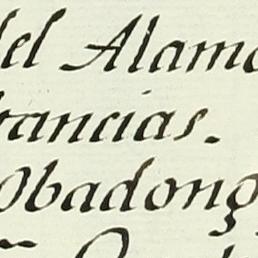 del Alamo
rancias.
Obadong